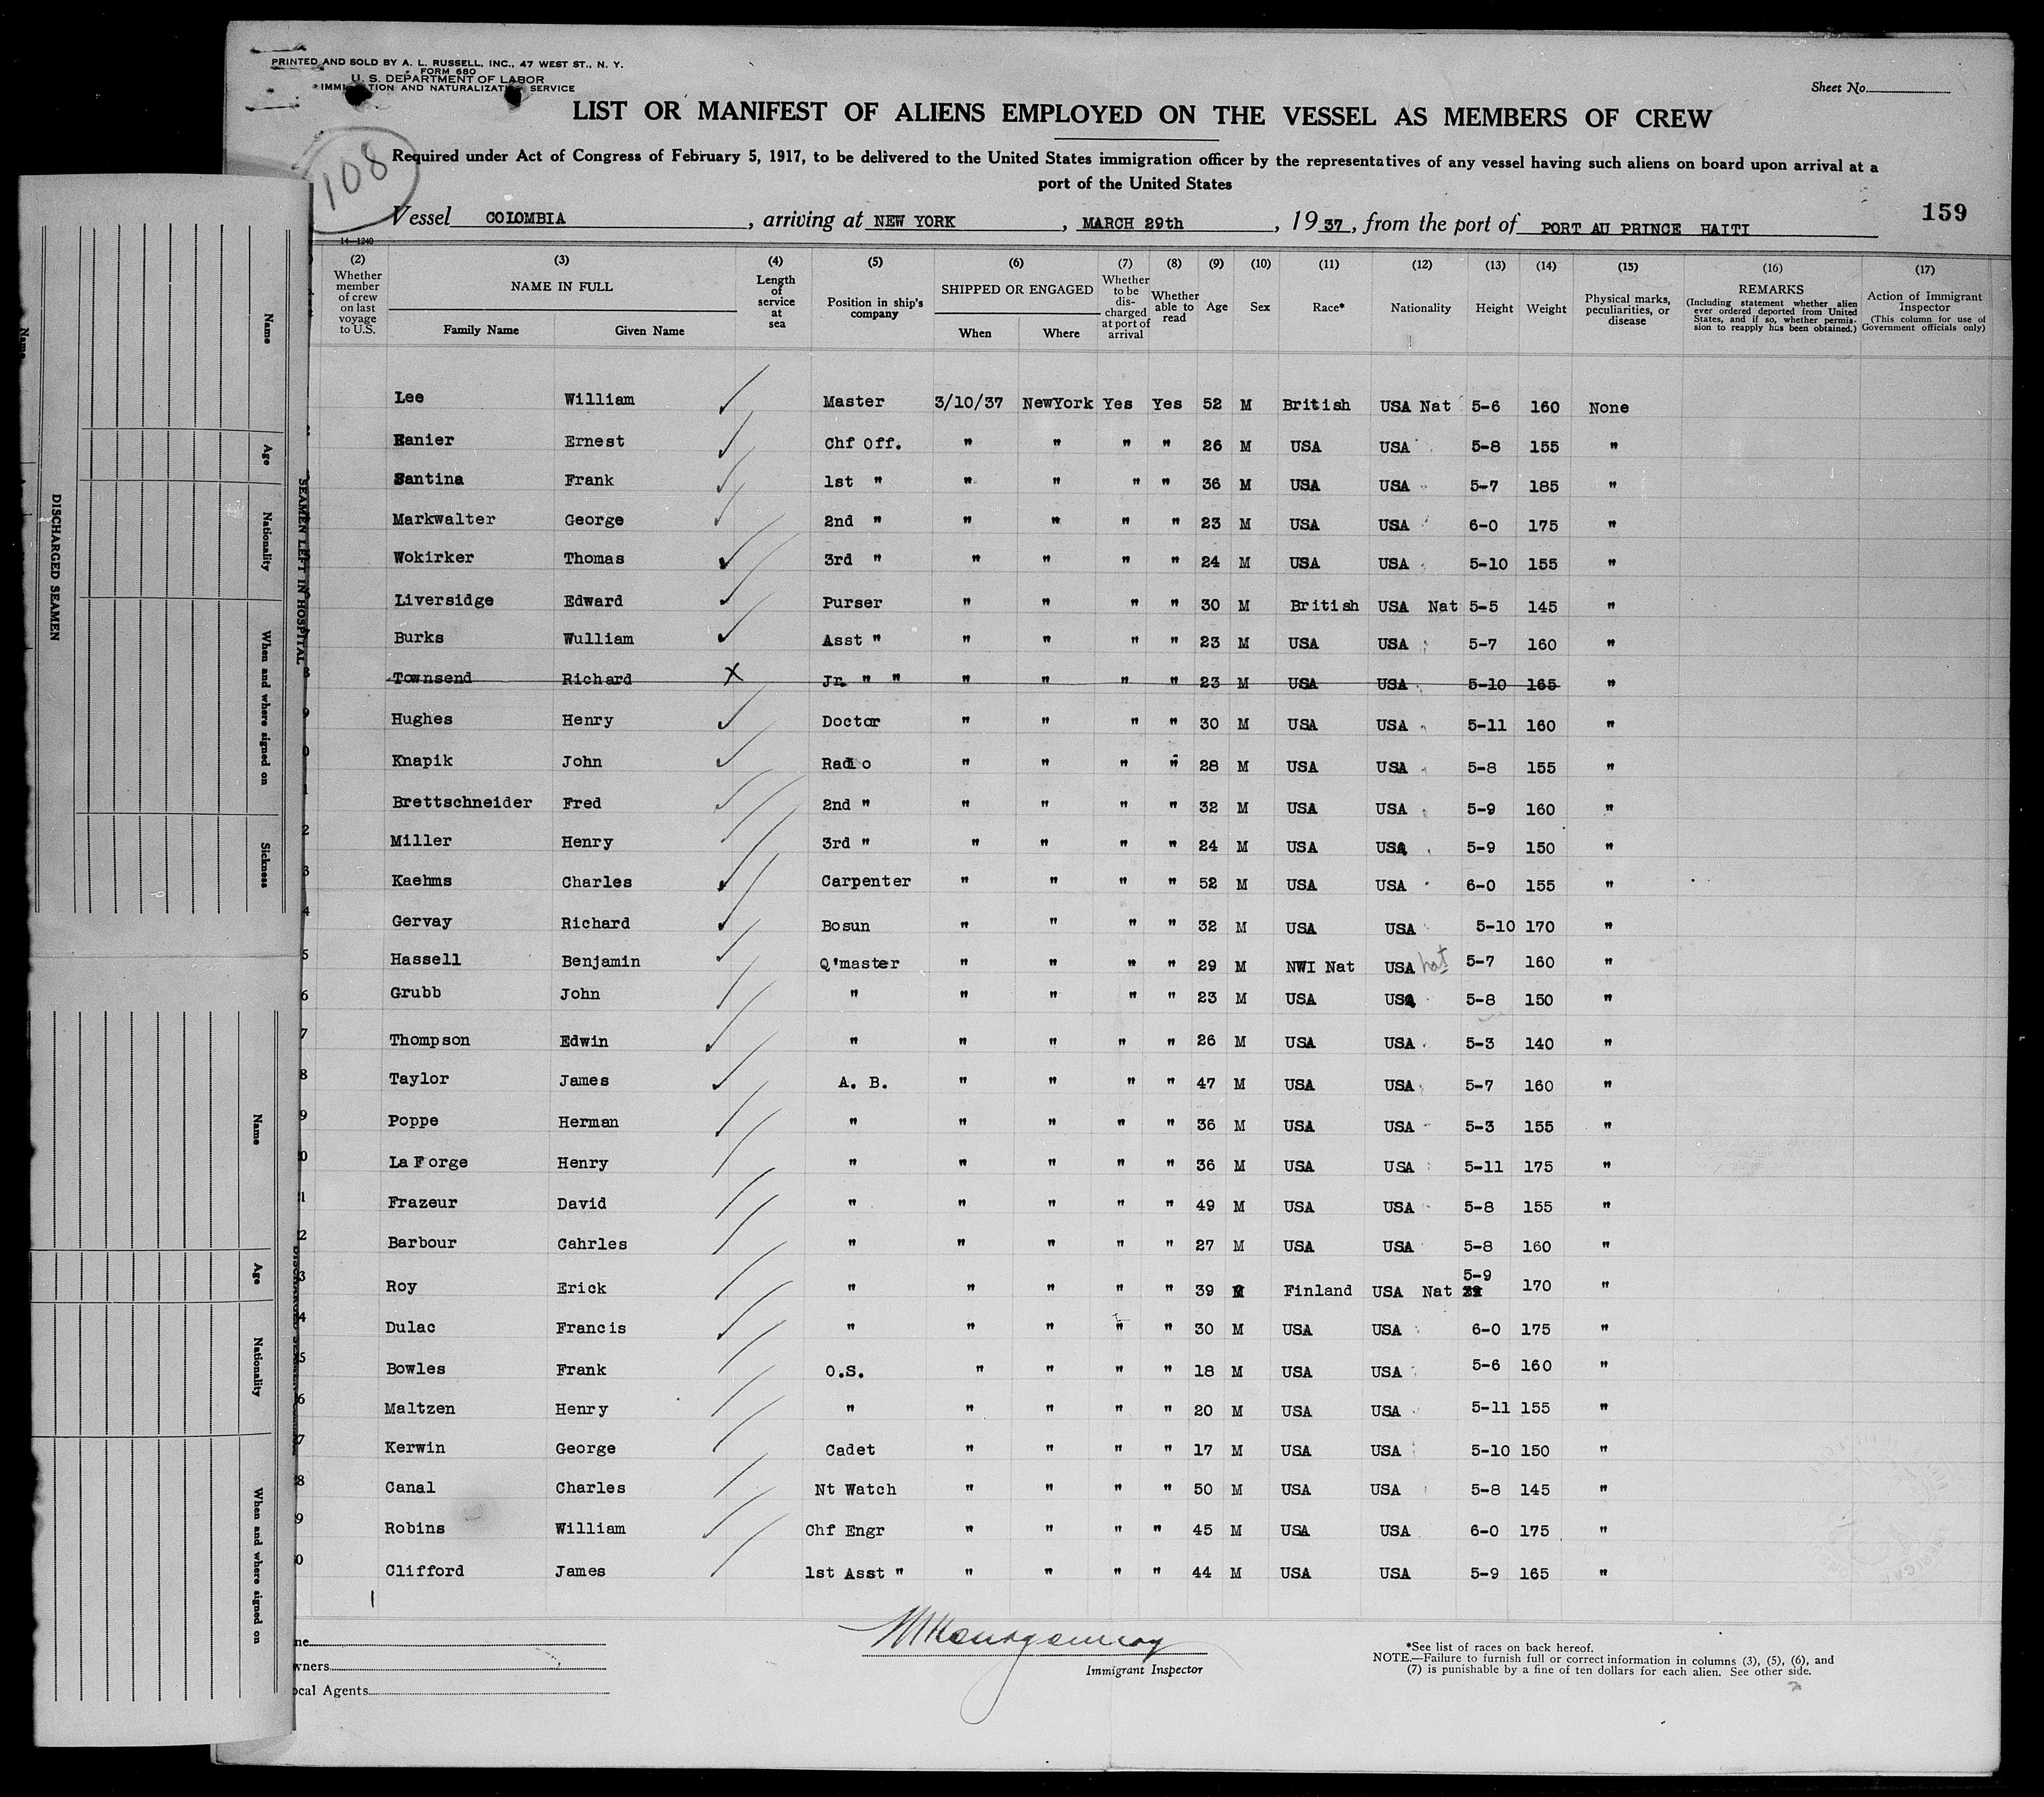 PRINTED AND SOLD BY A. L. RUSSELL, INC., 47 WEST ST., N. Y.
FORM 680
U. S. DEPARTMENT OF LABOR
IMMIGRATION AND NATURALIZATION SERVICE
Sheet No.
LIST OR MANIFEST OF ALIENS EMPLOYED ON THE VESSEL AS MEMBERS OF CREW
108
Required under Act of Congress of February 5, 1917, to be delivered to the United States immigration officer by the representatives of any vessel having such aliens on board upon arrival at a
port of the United States
159
Vessel COlOMBIA, arriving at NEW YORK, MARCH 29th, 1937, from the port of PORT AU PRINCE HAITI
14—1240
(2) (3) (4) (5) (6) (7) (8) (9) (10) (11) (12) (13) (14) (15) (16) (17)
Whether member of crew on last voyage to U.S.
NAME IN FULL
Family Name Given Name
Length of service at sea
Position in ship's company
SHIPPED OR ENGAGED
When Where
Whether to be discharged at port of arrival
Whether able to read
Age
Sex
Race*
Nationality
Height
Weight
Physical marks, peculiarities, or disease
REMARKS
(Including statement whether alien ever ordered deported from United States, and if so, whether permission to reapply has been obtained.)
Action of Immigrant Inspector
(This column for use of Government officials only)
Lee William Master 3/10/37 NewYork Yes Yes 52 M British USA Nat 5-6 160 None
2 Ranier Ernest Chf Off. " " " " 26 M USA USA 5-8 155 "
Santina Frank 1st " " " " " 36 M USA USA 5-7 185 "
Markwalter George 2nd " " " " " 23 M USA USA 6-0 175 "
Wokirker Thomas 3rd " " " " " 24 M USA USA 5-10 155 "
Liversidge Edward Purser " " " " 30 M British USA Nat 5-5 145 "
7 Burks Wulliam Asst " " " " " 23 M USA USA 5-7 160 "
8 Townsend Richard X Jr. " " " " " " 23 M USA USA 5-10 165 "
9 Hughes Henry Doctor " " " " 30 M USA USA 5-11 160 "
0 Knapik John Radio " " " " 28 M USA USA 5-8 155 "
1 Brettschneider Fred 2nd " " " " " 32 M USA USA 5-9 160 "
2 Miller Henry 3rd " " " " " 24 M USA USA 5-9 150 "
3 Kaehms Charles Carpenter " " " " 52 M USA USA 6-0 155 "
4 Gervay Richard Bosun " " " " 32 M USA USA 5-10 170 "
5 Hassell Benjamin Q'master " " " " 29 M NWI Nat USA nat 5-7 160 "
6 Grubb John " " " " " 23 M USA USA 5-8 150 "
7 Thompson Edwin " " " " " 26 M USA USA 5-3 140 "
8 Taylor James A. B. " " " " 47 M USA USA 5-7 160 "
9 Poppe Herman " " " " " 36 M USA USA 5-3 155 "
0 La Forge Henry " " " " " 36 M USA USA 5-11 175 "
1 Frazeur David " " " " " 49 M USA USA 5-8 155 "
2 Barbour Cahrles " " " " " 27 M USA USA 5-8 160 "
3 Roy Erick " " " " " 39 M Finland USA Nat 5-9 170 "
4 Dulac Francis " " " " " 30 M USA USA 6-0 175 "
5 Bowles Frank O.S. " " " " 18 M USA USA 5-6 160 "
6 Maltzen Henry " " " " " 20 M USA USA 5-11 155 "
7 Kerwin George Cadet " " " " 17 M USA USA 5-10 150 "
8 Canal Charles Nt Watch " " " " 50 M USA USA 5-8 145 "
9 Robins William Chf Engr " " " " 45 M USA USA 6-0 175 "
0 Clifford James 1st Asst " " " " " 44 M USA USA 5-9 165 "
Immigrant Inspector
wners
ocal Agents
*See list of races on back hereof.
NOTE.—Failure to furnish full or correct information in columns (3), (5), (6), and
(7) is punishable by a fine of ten dollars for each alien. See other side.
SEAMEN LEFT IN HOSPITAL
Name Age Nationality When and where signed on Sickness
DISCHARGED SEAMEN
Name Age Nationality When and where signed on
Name